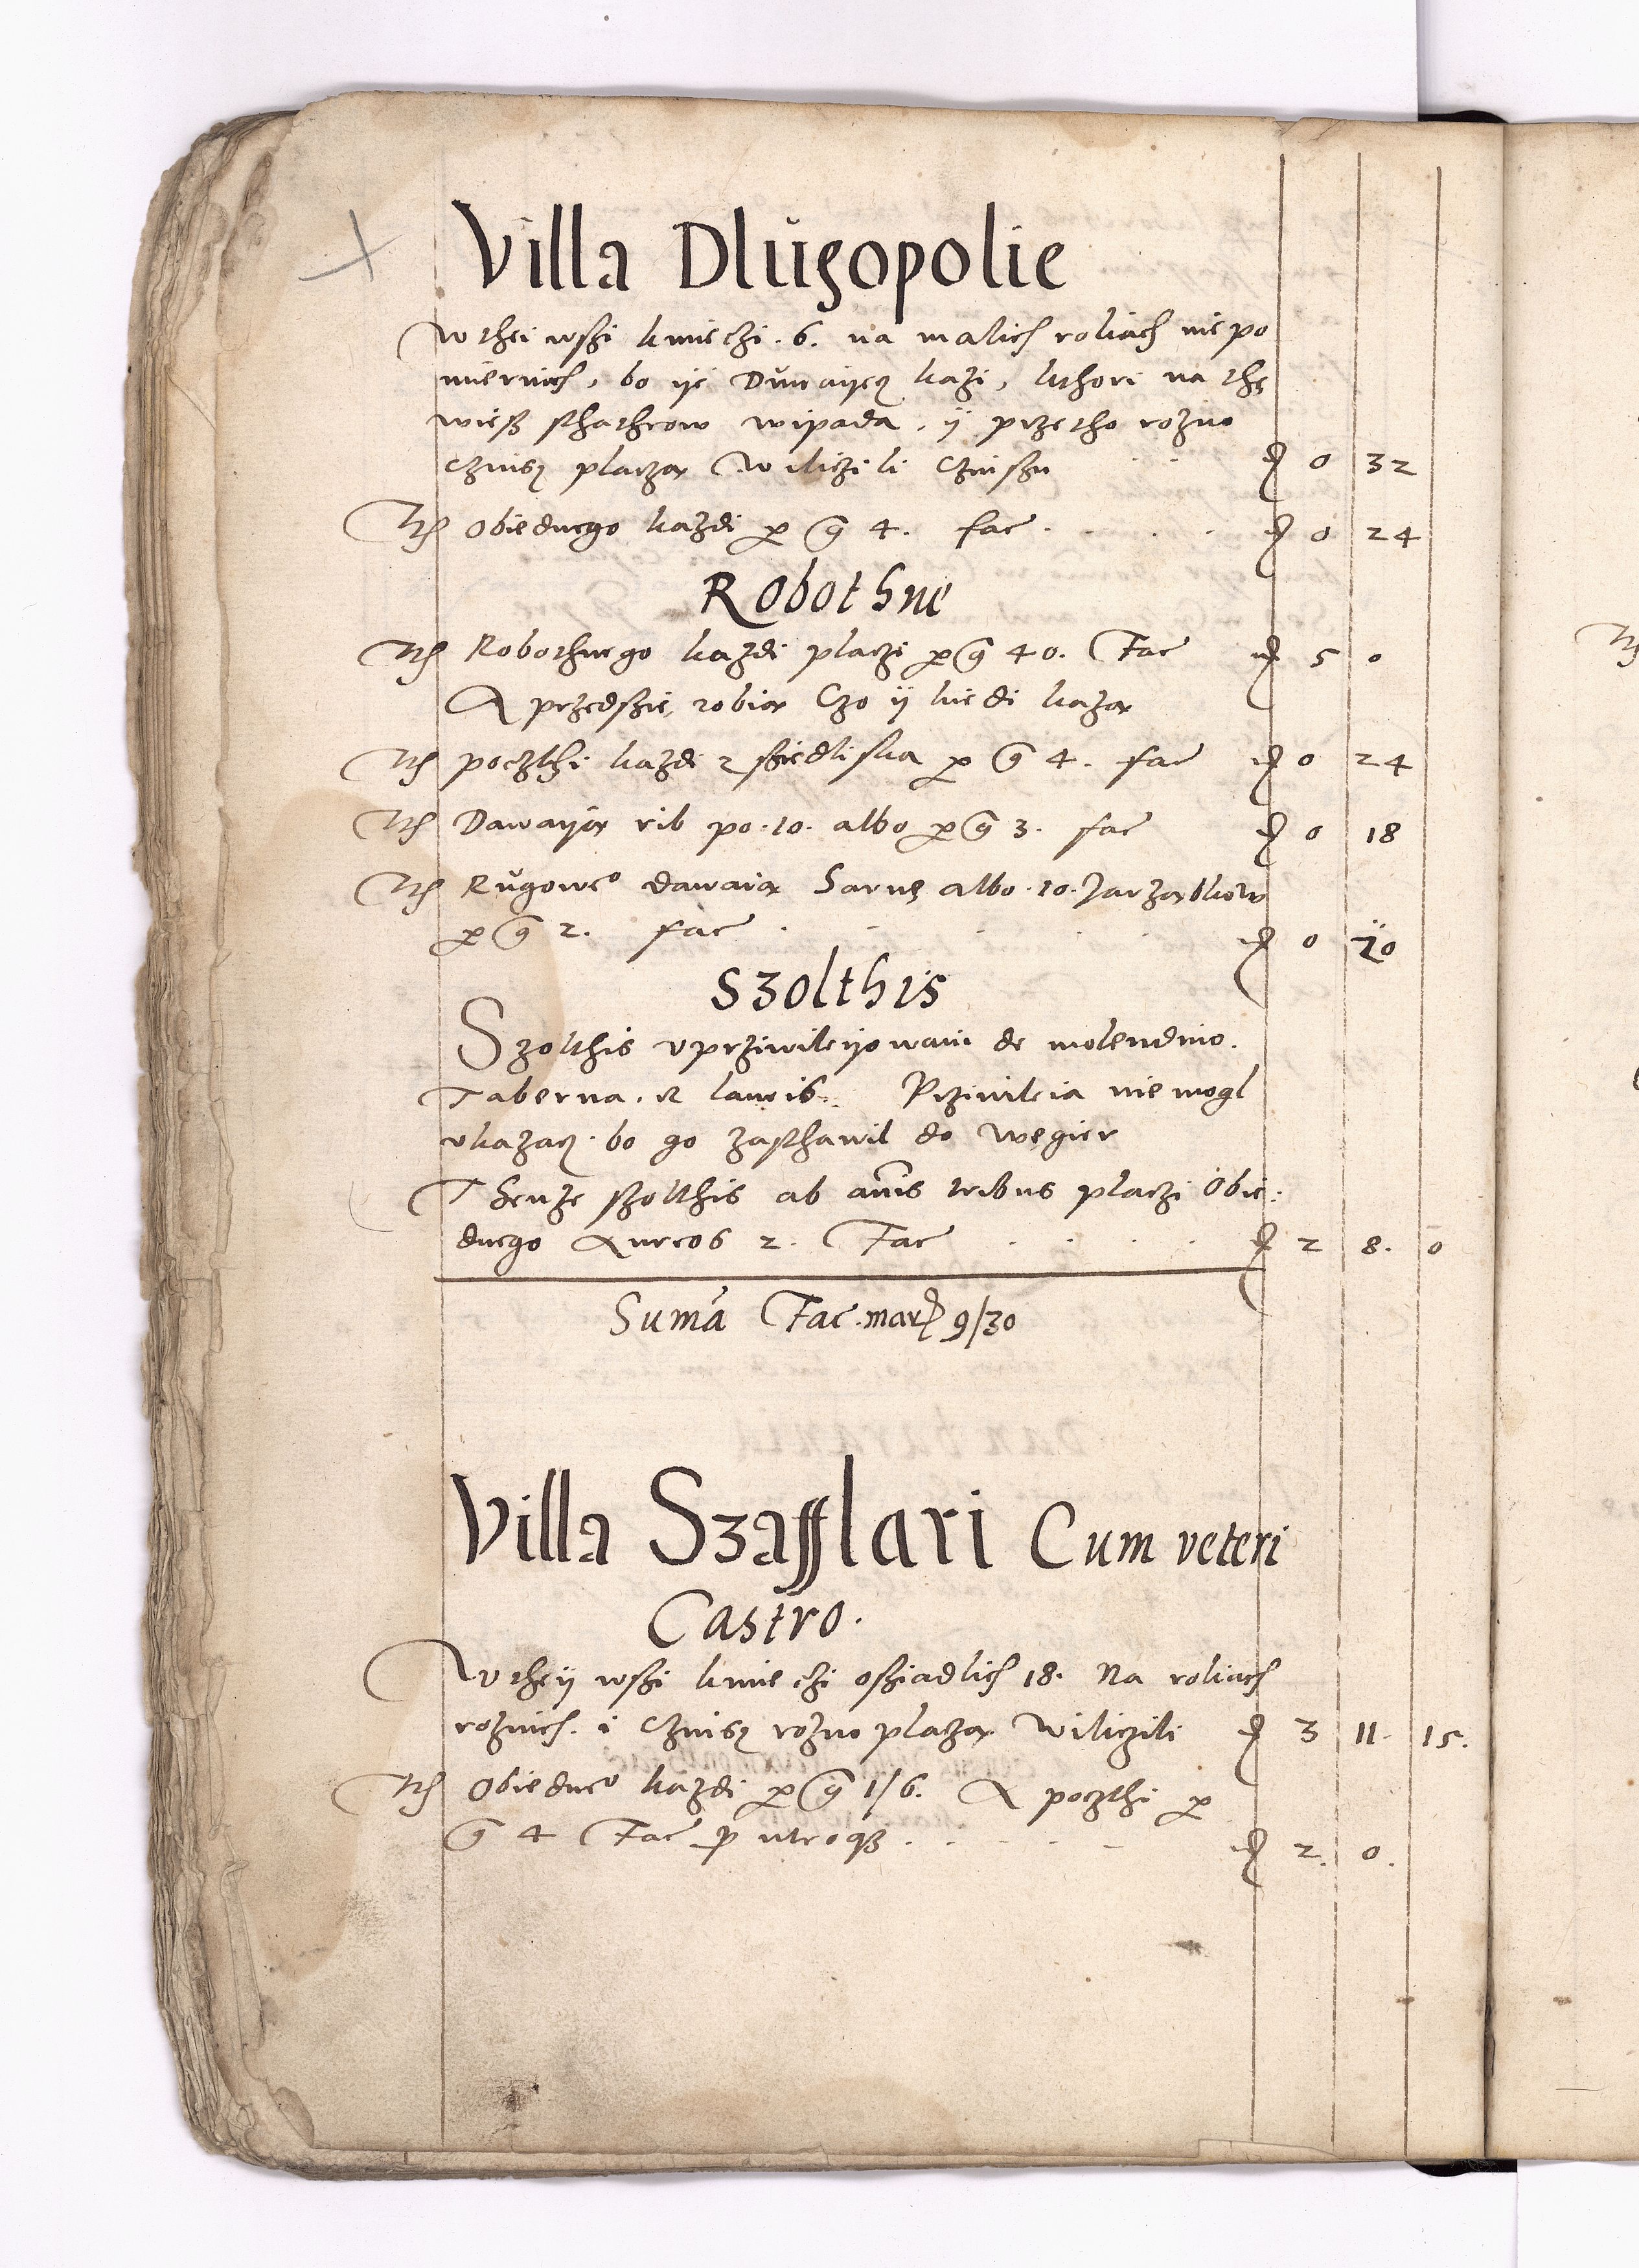 Villa Dlugopolie
W thei wszi kmieczi . 6 . na malich roliach nie po
miernich, bo ije Dunaiyecz kazi, kthori na thę
wiesz sthathrow wipada . ij przetho rozno
czinsz placzą Wiliczili Czinszu 0 32
Ith Obiednego kazdi per gr 4 . fac . 0 24
Robothne
Ith Robothnego kazdi placzi per gr 40 . Fac 5 0
A przedszie robią Czo ij kiedi kazą
Ith poczthi kazdi z sziedliska per gr 4 . fac 0 24
Ith Dawayią rib po . 10 . albo per gr 3 . fac 0 18
Ith Rugowe° dawaią Sarnę albo . 10 . Jarząbkow
per gr 2 . fac 0 20
Szolthis
Szolthis vprziwileijowani de molendino .
Taberna . et laneis . Prziwileia nie mogl
vkazacz . bo go zasthawil do Wegier
Thenze szolthis ab annis tribus placzi Obie:
dnego Aureos 2 . Fac 2 8 . 0
Suma Fac . mar 9/30
Villa Szafflari Cum veteri
Castro .
W theij wszi kmieczi osziadlich 18 . Na roliach
roznich . i Czinsz rozno placzą Wiliczili 3 11 . 15 .
Ith Obiedne° kazdi per gr 1/6 . A poczthi per
gr 4 Fac pro utroque . 2 . 0 .